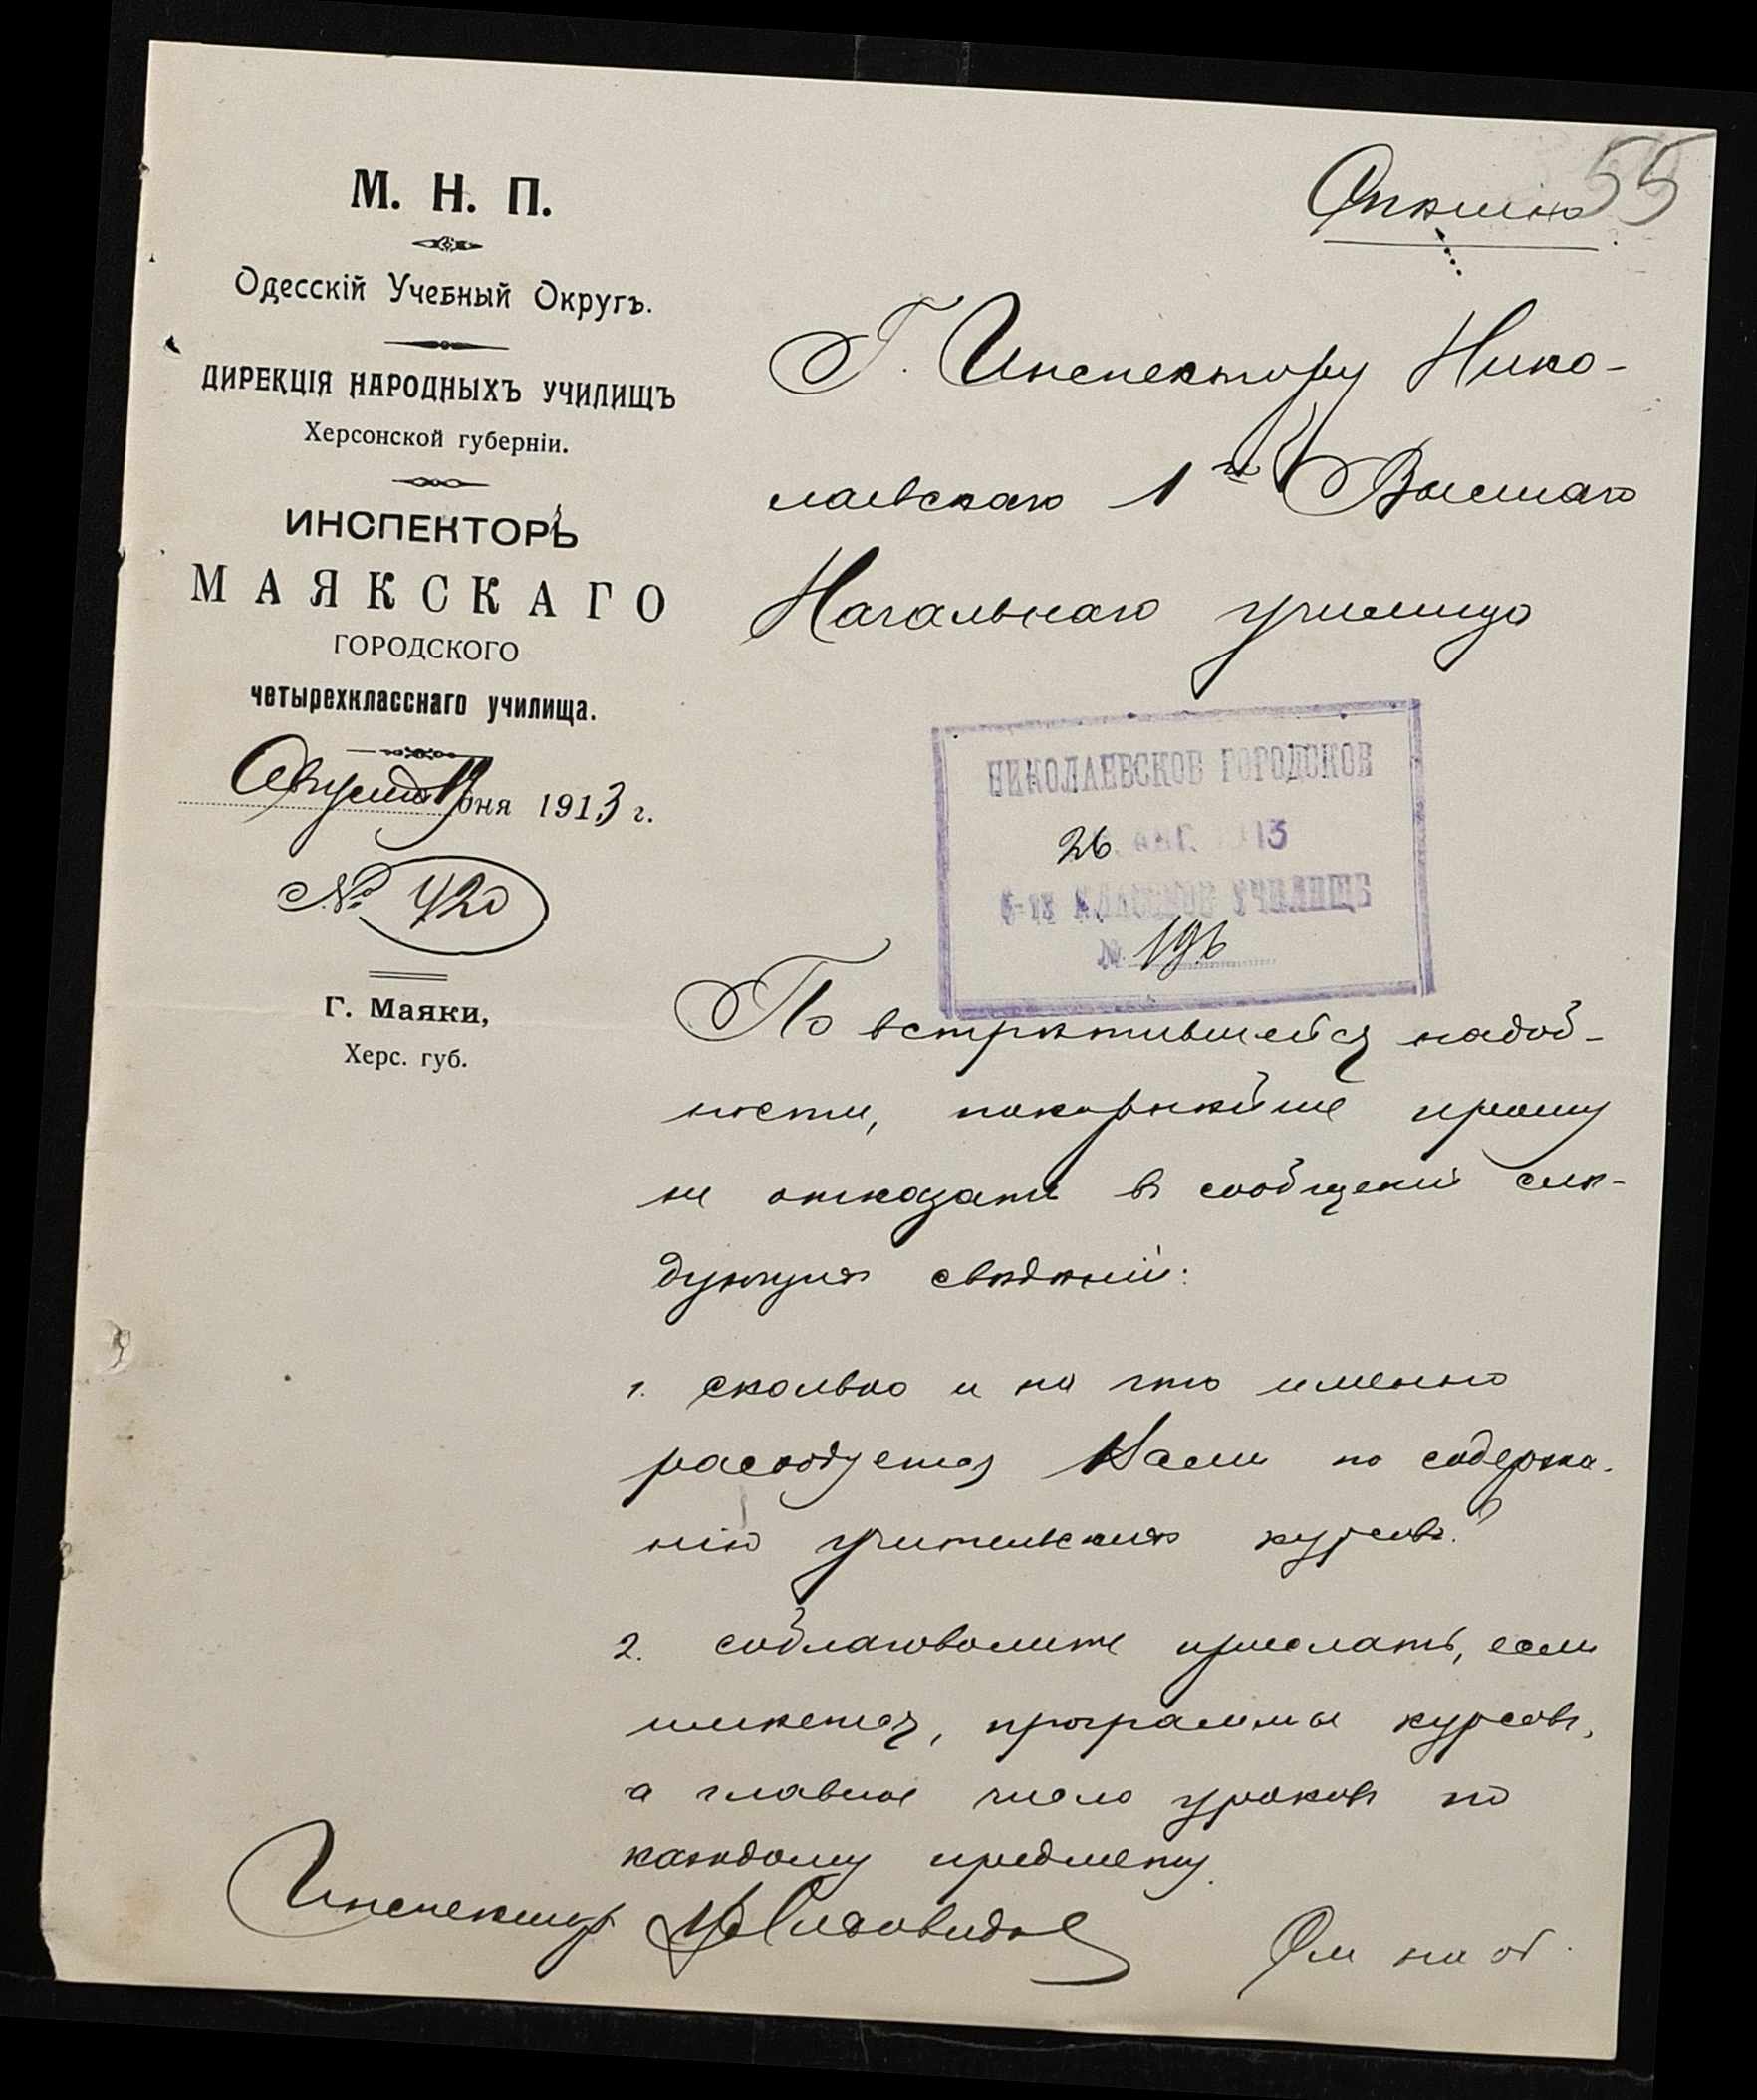 М. Н. П.
Одесскій Учебный Округъ.
ДИРЕКЦІЯ НАРОДНЫХЪ УЧИЛИЩЪ
Херсонской губерніи.
ИНСПЕКТОРЪ
МАЯКСКАГО
ГОРОДСКОГО
четырехкласснаго училища.
Августа 19 дня 1913 г.
№ 420
Г. Маяки,
Херс. губ.
55
Г. Инспектору Нико-
лаевскаго 1го Высшаго
Начальнаго училища
НИКОЛАЕВСКОЕ ГОРОДСКОЕ
26 АВГ. 1913
КЛАССНОЕ УЧИЛИЩЕ
№ 196
По встрѣтившейся надоб-
ности, покорнѣйше прошу
не отказать въ сообщеніи слѣ-
дующихъ свѣдѣній:
1. сколько и на что именно
расходуется Вами по содержа-
нію учительскихъ курсовъ?
2. соблаговолите прислать, если
имѣется, программы курсовъ,
а главное число уроковъ по
каждому предмету.
Инспекторъ